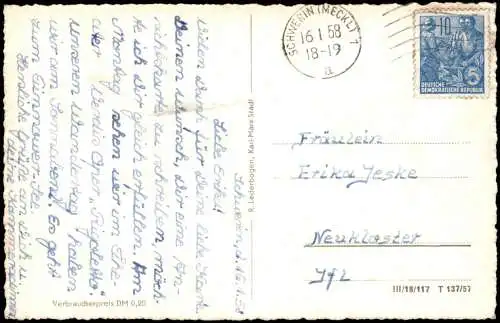 Schwerin, d. 16.1.58
Liebe Erika!
Vielen Dank für Deine liebe Karte.
Deinen Wunsch, Dir eine An-
sichtskarte zu schreiben, möch-
te ich Dir gleich erfüllen. Am
Montag sehen wir im The-
ater Verdis Oper „Rigoletto“
Unseren Wandertag halten
wir am Sonnabend. Es geht
zum Pinnower-See.
Herzliche Grüße an Dich u.
Deine
Verbraucherpreis DM 0,20
R. Lederbogen, Karl-Marx-Stadt
SCHWERIN (MECKL) 1
16.1.58
18-19
a
10
5
DEUTSCHE
DEMOKRATISCHE REPUBLIK
Fräulein
Erika Jeske
Neukloster
Ifl
III/18/117 T 137/57